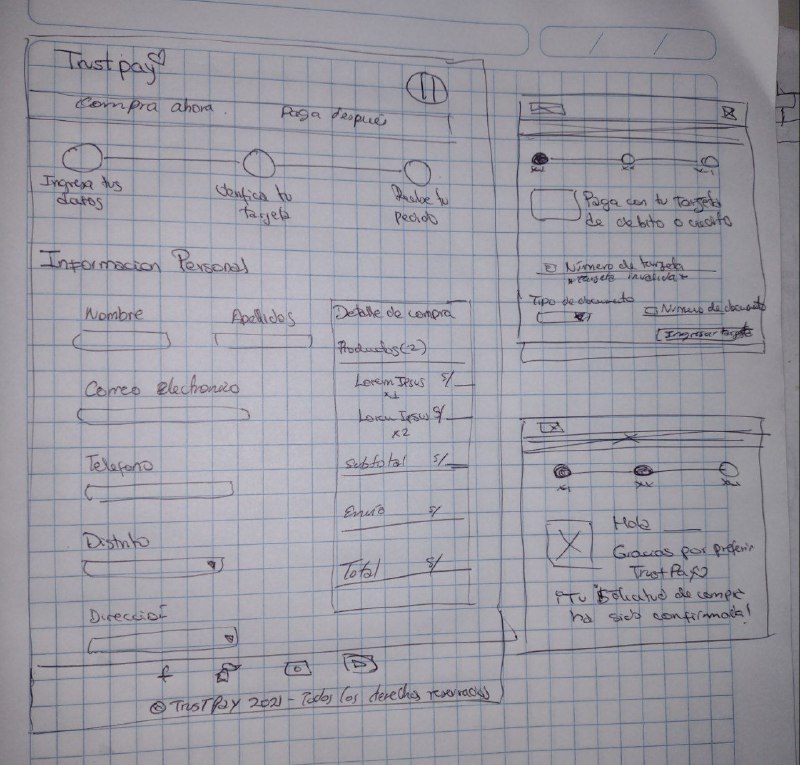 Trustpay
Compra ahora. Paga después
Ingresa tus
datos
Verifica tu
tarjeta
Recibe tu
pedido
Informacion Personal
Nombre
Apellidos
Correo electronico
Telefono
Distrito
Dirección
Detalle de compra
Productos(2)
Lorem Ipsus S/
x1
Lorem Ipsus S/
x2
Subtotal S/
Envío S/
Total S/
© TrustPay 2021 - Todos los derechos reservados
Paga con tu tarjeta
de debito o credito
Número de tarjeta
*tarjeta invalida*
Tipo de documento
Número de documento
Ingresar tarjeta
Hola
Gracias por preferir
TrustPay
¡Tu solicitud de compra
ha sido confirmada!